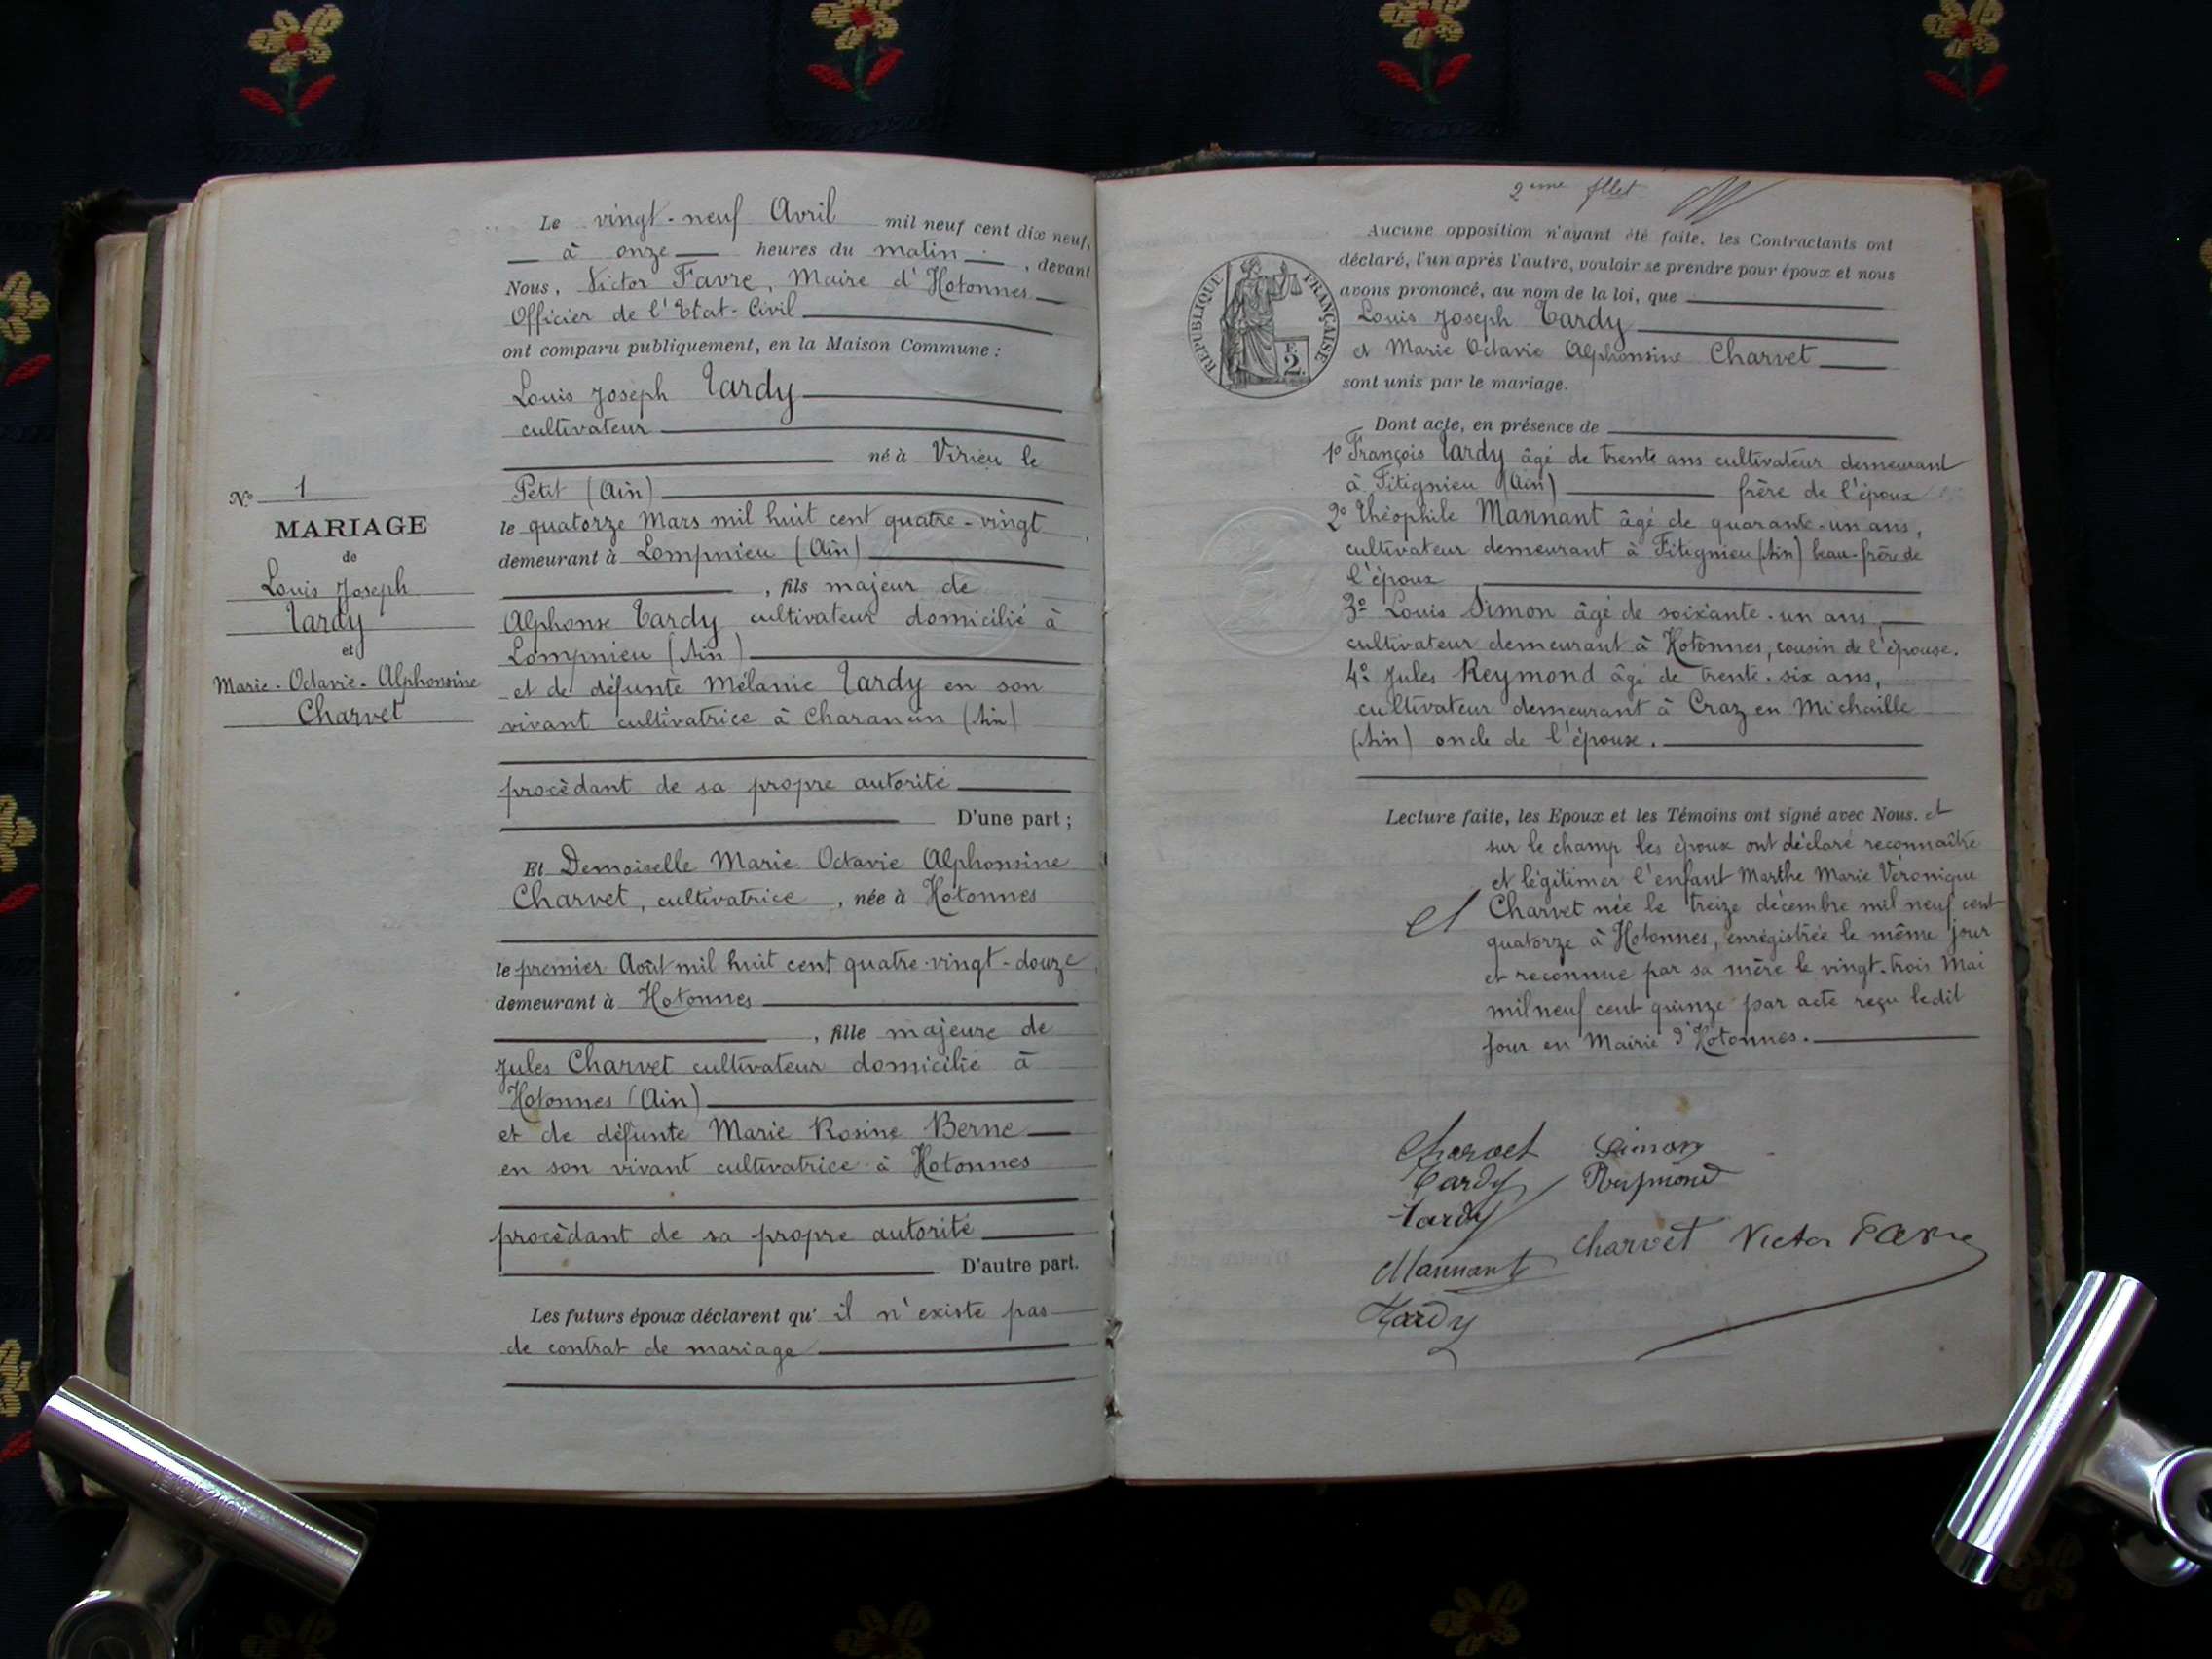 Le vingt-neuf Avril mil neuf cent dix neuf,
à onze heures du matin, devant
Nous, Victor Favre, Maire d'Hotonnes
Officier de l'Etat-Civil
ont comparu publiquement, en la Maison Commune :
Louis Joseph Tardy
cultivateur
né à Virieu le
Petit (Ain)
le quatorze Mars mil huit cent quatre-vingt
demeurant à Lompnieu (Ain)
, fils majeur de
Alphonse Tardy cultivateur domicilié à
Lompnieu (Ain)
et de défunte Mélanie Tardy en son
vivant cultivatrice à Charancin (Ain)
procèdant de sa propre autorité
D'une part ;
Et Demoiselle Marie Octavie Alphonsine
Charvet, cultivatrice, née à Hotonnes
le premier Août mil huit cent quatre-vingt-douze
demeurant à Hotonnes
, fille majeure de
Jules Charvet cultivateur domicilié à
Hotonnes (Ain)
et de défunte Marie Rosine Berne
en son vivant cultivatrice à Hotonnes
procèdant de sa propre autorité
D'autre part.
Les futurs époux déclarent qu'il n'existe pas
de contrat de mariage
N° 1
MARIAGE
de
Louis Joseph
Tardy
et
Marie-Octavie-Alphonsine
Charvet
2ème fllet
Aucune opposition n'ayant été faite, les Contractants ont
déclaré, l'un après l'autre, vouloir se prendre pour époux et nous
avons prononcé, au nom de la loi, que
Louis Joseph Tardy
et Marie Octavie Alphonsine Charvet
sont unis par le mariage.
REPUBLIQUE FRANÇAISE
F.
2.
Dont acte, en présence de
1° François Tardy âgé de trente ans cultivateur demeurant
à Fitignieu (Ain) frère de l'époux
2° Théophile Mannant âgé de quarante-un ans,
cultivateur demeurant à Fitignieu (Ain) beau-frère de
l'époux
3° Louis Simon âgé de soixante-un ans,
cultivateur demeurant à Hotonnes, cousin de l'épouse.
4° Jules Reymond âgé de trente-six ans,
cultivateur demeurant à Craz en Michaille
(Ain) oncle de l'épouse.
Lecture faite, les Epoux et les Témoins ont signé avec Nous. et
sur le champ les époux ont déclaré reconnaître
et légitimer l'enfant Marthe Marie Véronique
Charvet née le treize décembre mil neuf cent
quatorze à Hotonnes, enrégistrée le même jour
et reconnue par sa mère le vingt-trois Mai
mil neuf cent quinze par acte reçu ledit
jour en Mairie d'Hotonnes.
Charvet Simon
Tardy Reymond
Tardy
Charvet Victor Favre
Mannant
Tardy